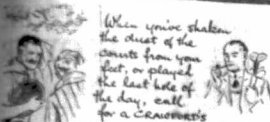 When you've shaken
the dust of the
courts from your
feet, or played
the last hole of
the day, call
for a CRAWFORD'S